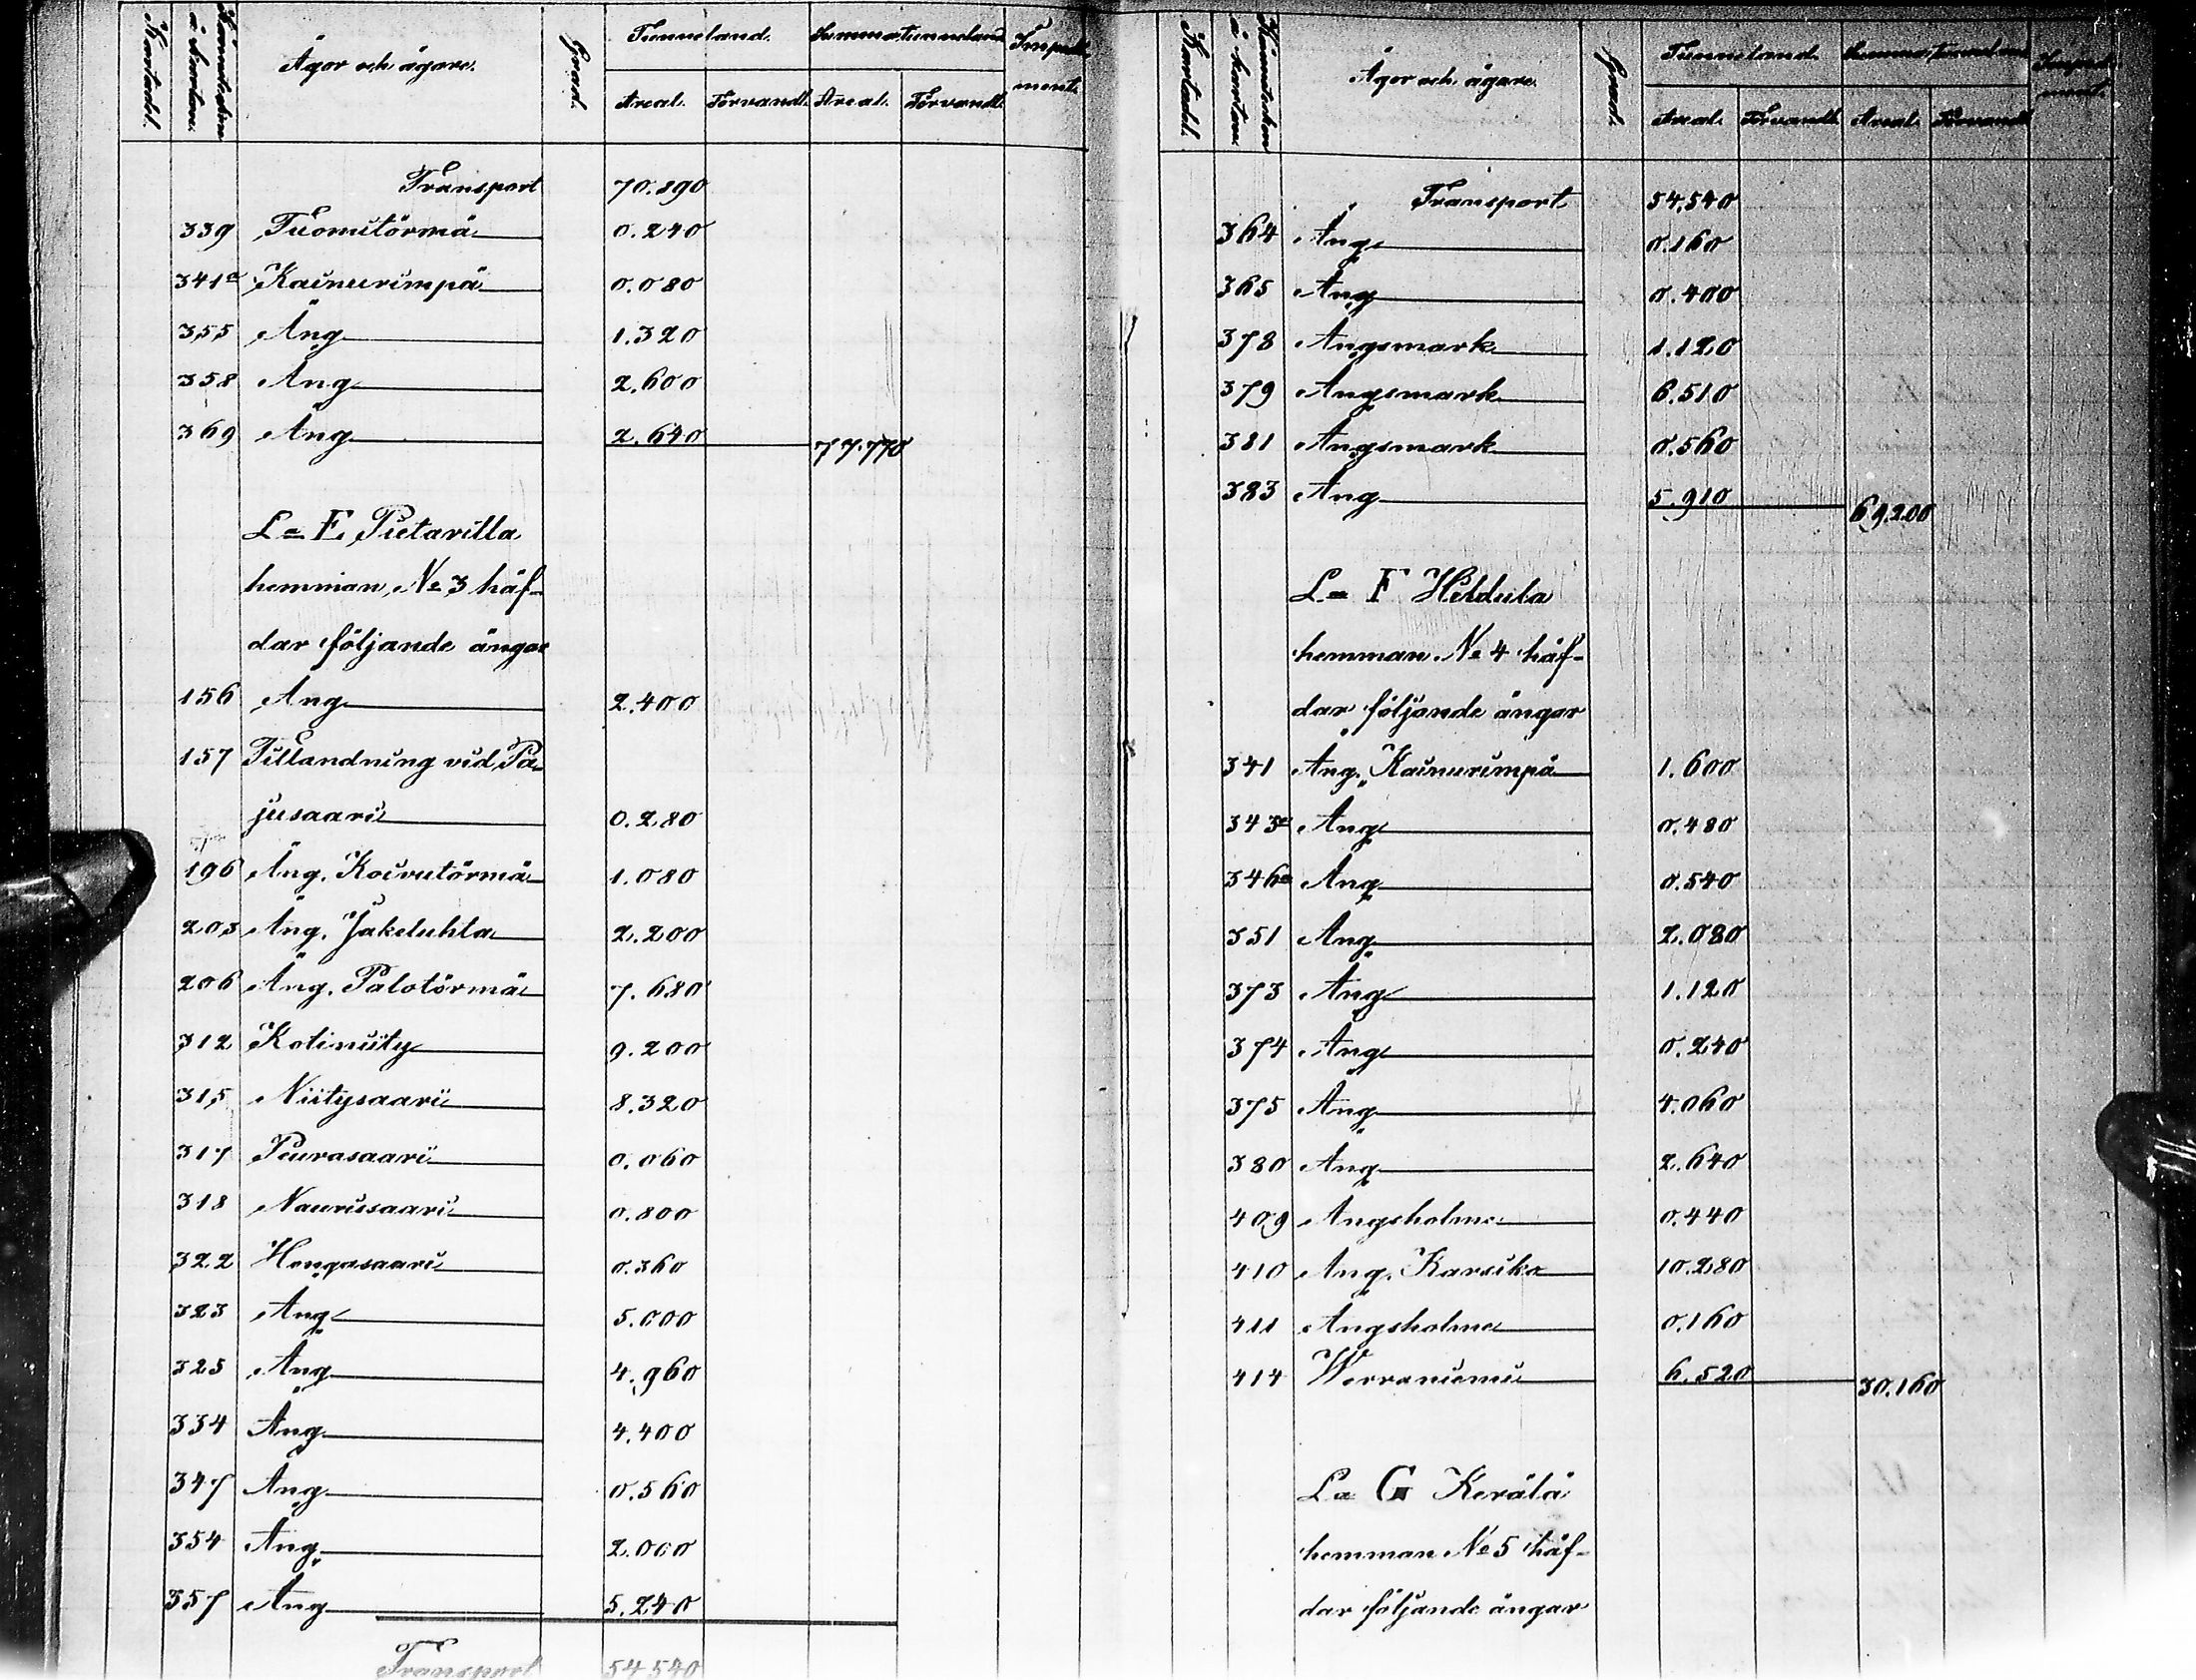 Kartadel.
Kännetecken å kartan.
Ägor och ägare.
Grad.
Tunneland.
Summa tunneland
Impediment.
Areal. Förvandl. Areal. Förvandl.
Transport 70.890
339 Tuomitörmä 0.240
341a Kainurimpä 0.080
355 Äng 1.320
358 Äng 2.600
369 Äng 2.640 77.770
La E Pietarilla
hemman, No 3 häf-
dar följande ängar
156 Äng 2.400
157 Tillandning vid Pa-
jusaari 0.280
196 Äng. Koivutörmä 1.080
203 Äng. Jakeluhta 2.200
206 Äng. Palotörmä 7.680
312 Kotiniity 9.200
315 Niitysaari 8.320
317 Peurasaari 0.060
318 Naurisaari 0.800
322 Hongasaari 0.360
323 Äng 5.000
325 Äng 4.960
334 Äng 4.400
347 Äng 0.560
354 Äng 2.000
357 Äng 5.240
Transport 54540
Kartadel.
Kännetecken å kartan
Ägor och ägare.
Grad.
Tunneland.
Summa tunneland
Impediment.
Areal. Förvandl. Areal. Förvandl.
Transport 54,540
364 Äng 0.160
365 Äng 0.400
378 Ängsmark 1.120
379 Ängsmark 6.510
381 Ängsmark 0.560
383 Äng 5.910 69.200
La F Heldula
hemman No 4 häf-
dar följande ängar
341 Äng. Kainurimpä 1.600
343a Äng 0.480
346a Äng 0.540
351 Äng 2.080
373 Äng 1.120
374 Äng 0.240
375 Äng 4.060
380 Äng 2.640
409 Ängsholme 0.440
410 Äng. Karsiko 10.280
411 Ängsholme 0.160
414 Werraniemi 6.520 30.160
La G Kerälä
hemman No 5 häf-
dar följande ängar